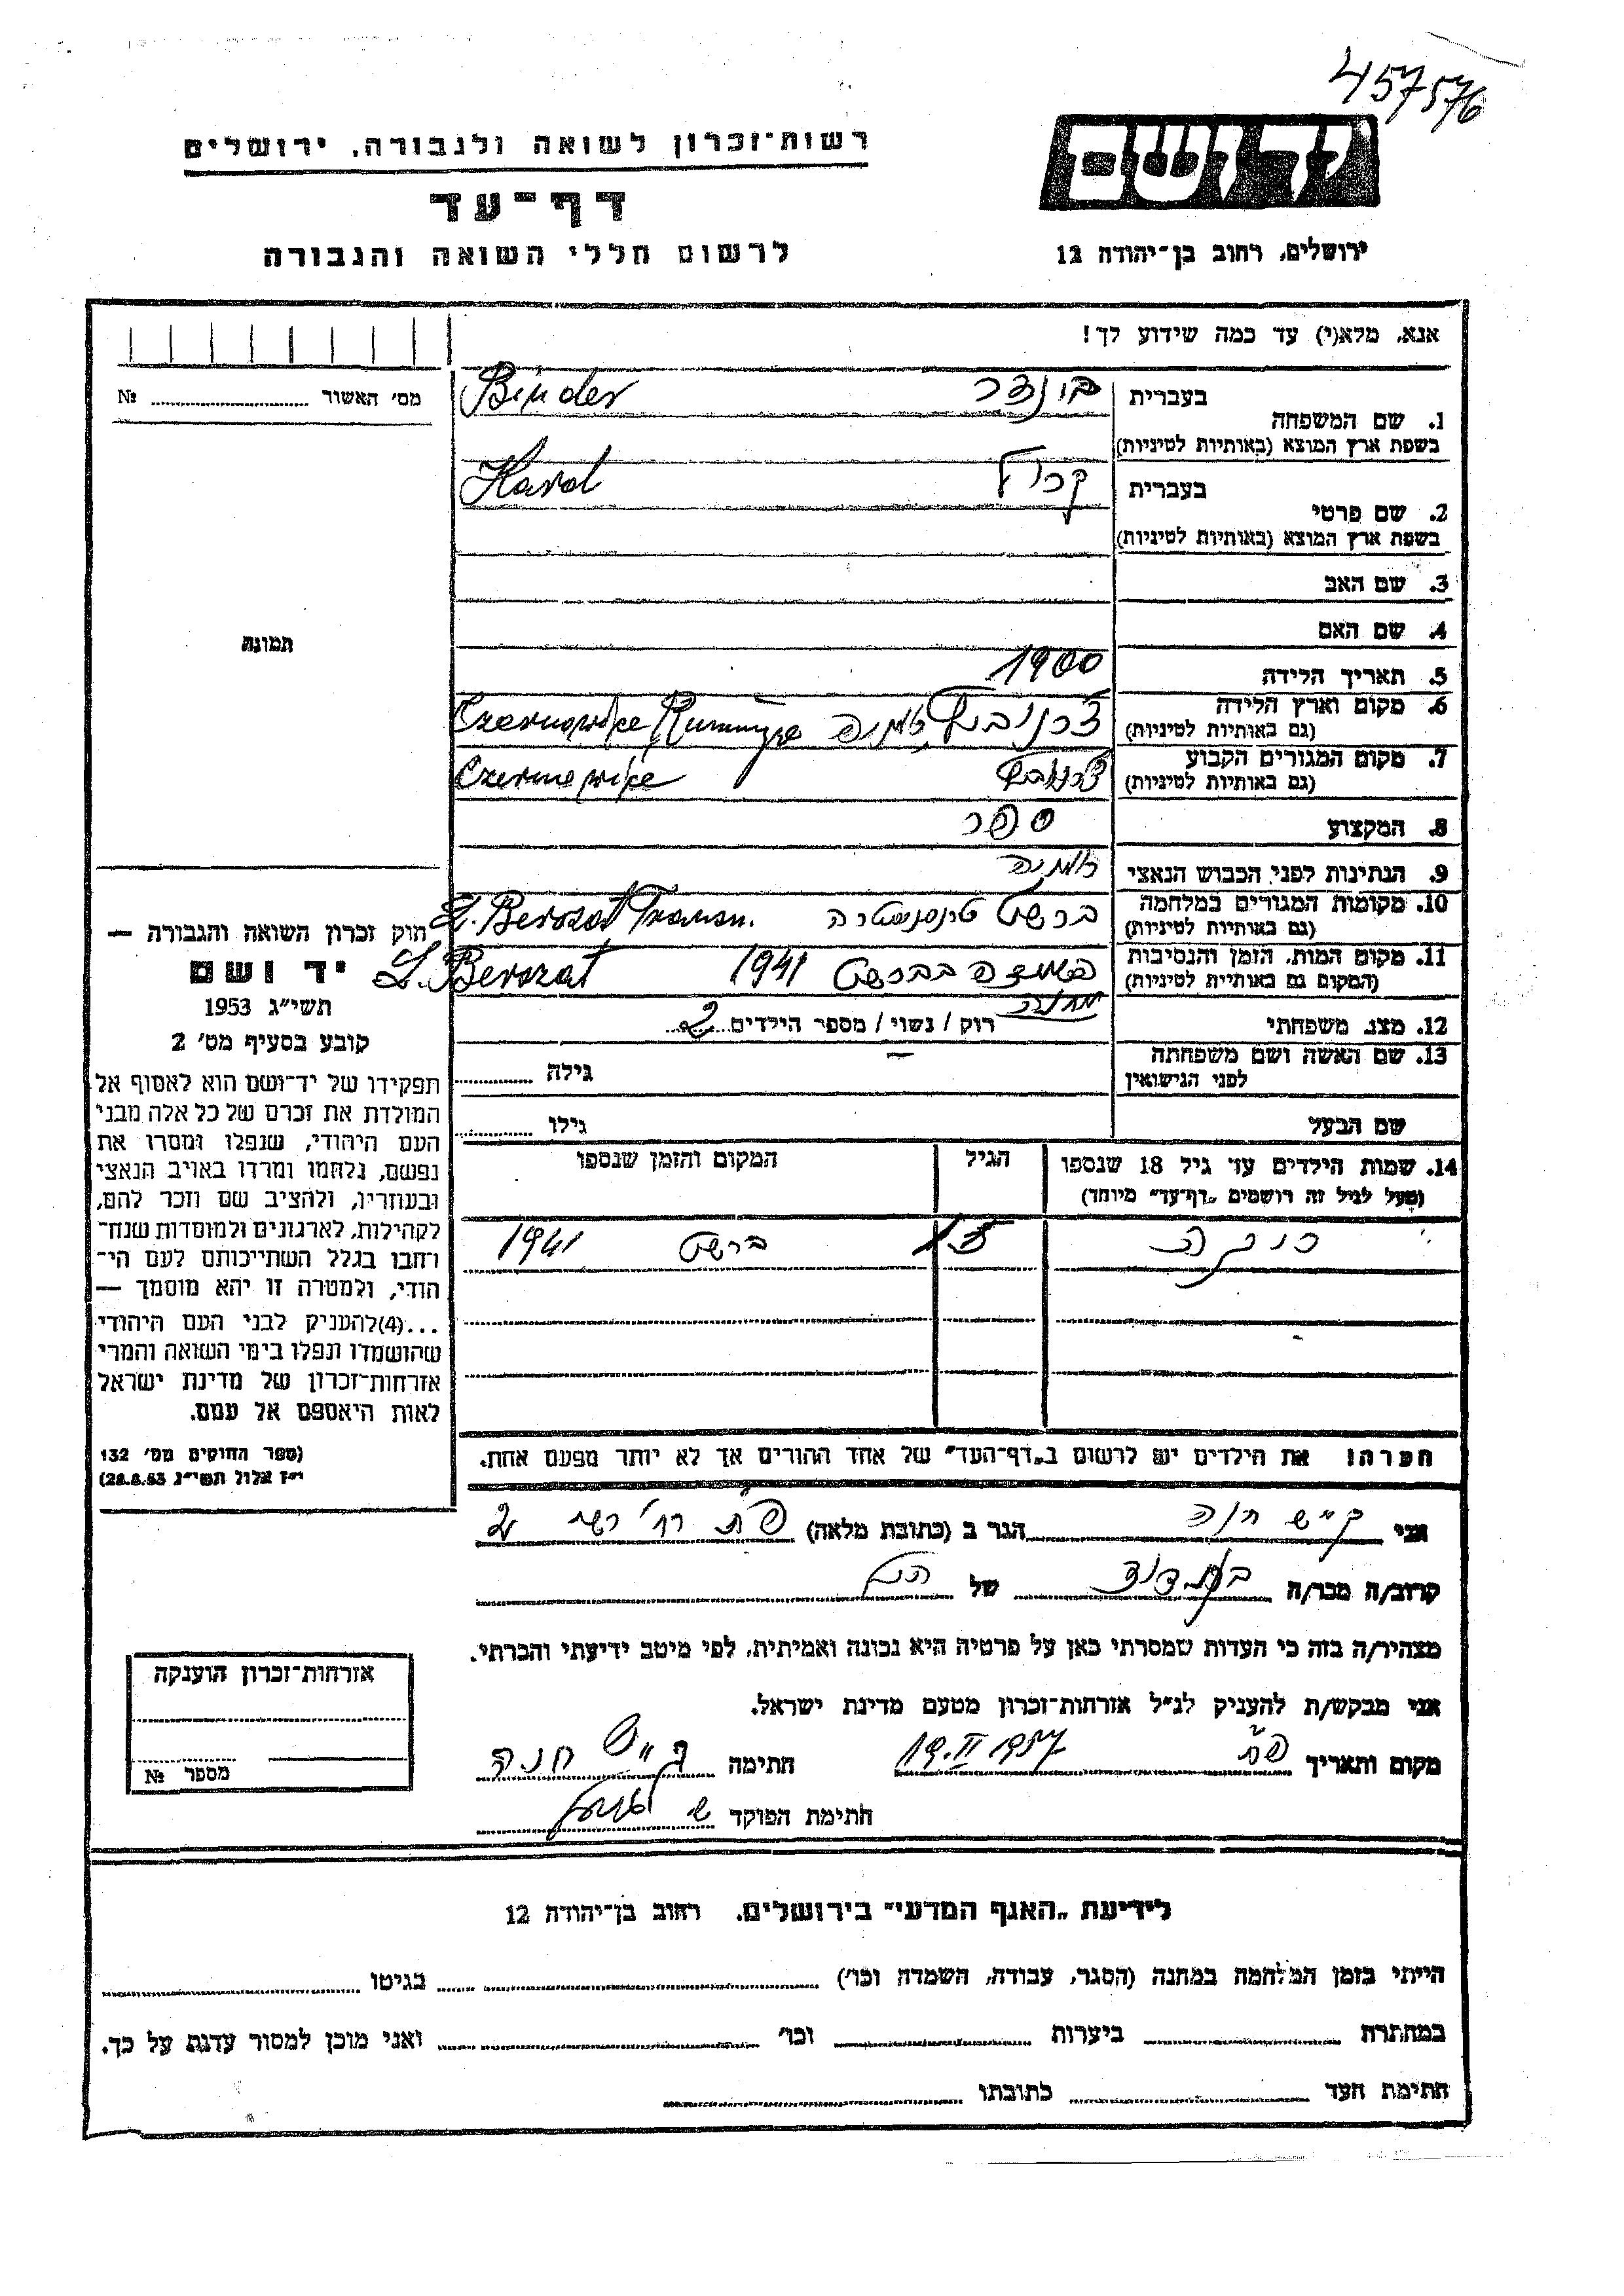 457576
רשות־זכרון לשואה ולגבורה, ירושלים
יד ושם
דף־עד
לרשום חללי השואה והגבורה
ירושלים, רחוב בן־יהודה 12
אנא, מלא(י) עד כמה שידוע לך!
מס' האשור № 
1. שם המשפחה בעברית בינדר Binder
בשפת ארץ המוצא (באותיות לטיניות)
2. שם פרטי בעברית קרול Karol
בשפת ארץ המוצא (באותיות לטיניות)
3. שם האב
4. שם האם
תמונה
5. תאריך הלידה 1900
6. מקום וארץ הלידה
(גם באותיות לטיניות)
7. מקום המגורים הקבוע
(גם באותיות לטיניות)
8. המקצוע ספר
9. הנתינות לפני הכבוש הנאצי
10. מקומות המגורים במלחמה
(גם באותיות לטיניות)
11. מקום המות, הזמן והנסיבות 1941
(המקום גם באותיית לטיניות)
12. מצב משפחתי רוק / נשוי / מספר הילדים 2
13. שם האשה ושם משפחתה
לפני הנישואין גילה
שם הבעל גילו
14. שמות הילדים עד גיל 18 שנספו הגיל המקום והזמן שנספו
(מעל לגיל זה רושמים „דף־עד" מיוחד)
1941
חוק זכרון השואה והגבורה —
יד ושם
תשי"ג 1953
קובע בסעיף מס' 2
תפקידו של יד־ושם הוא לאסוף אל
המולדת את זכרם של כל אלה מבני
העם היהודי, שנפלו ומסרו את
נפשם, נלחמו ומרדו באויב הנאצי
ובעוזריו, ולהציב שם וזכר להם,
לקהילות, לארגונים ולמוסדות שנח־
רחבו בגלל השתייכותם לעם הי־
הודי, ולמטרה זו יהא מוסמך —
...(4)להעניק לבני העם היהודי
שהושמדו ונפלו בימי השואה והמרי
אזרחות־זכרון של מדינת ישראל
לאות היאספם אל עמם.
(ספר החוקים מס' 132
י"ז אלול תשי"ג 28.8.53)
הערה! את הילדים יש לרשום ב„דף־העד" של אחד ההורים אך לא יותר מפעם אחת.
אני חנה הגר ב (כתובת מלאה)
קרוב/ה מכר/ה של הנ"ל
מצהיר/ה בזה כי העדות שמסרתי כאן על פרטיה היא נכונה ואמיתית, לפי מיטב ידיעתי והכרתי.
אני מבקש/ת להעניק לנ"ל אזרחות־זכרון מטעם מדינת ישראל.
מקום ותאריך 19.II 1957 חתימה חנה
חתימת הפוקד
אזרחות־זכרון הוענקה
מספר №
לידיעת „האגף המדעי" בירושלים, רחוב בן־יהודה 12
הייתי בזמן המלחמה במחנה (הסגר, עבודה, השמדה וכו') בגיטו
במחתרת ביערות וכו' ואני מוכן למסור עדות על כך.
חתימת העד כתובתו